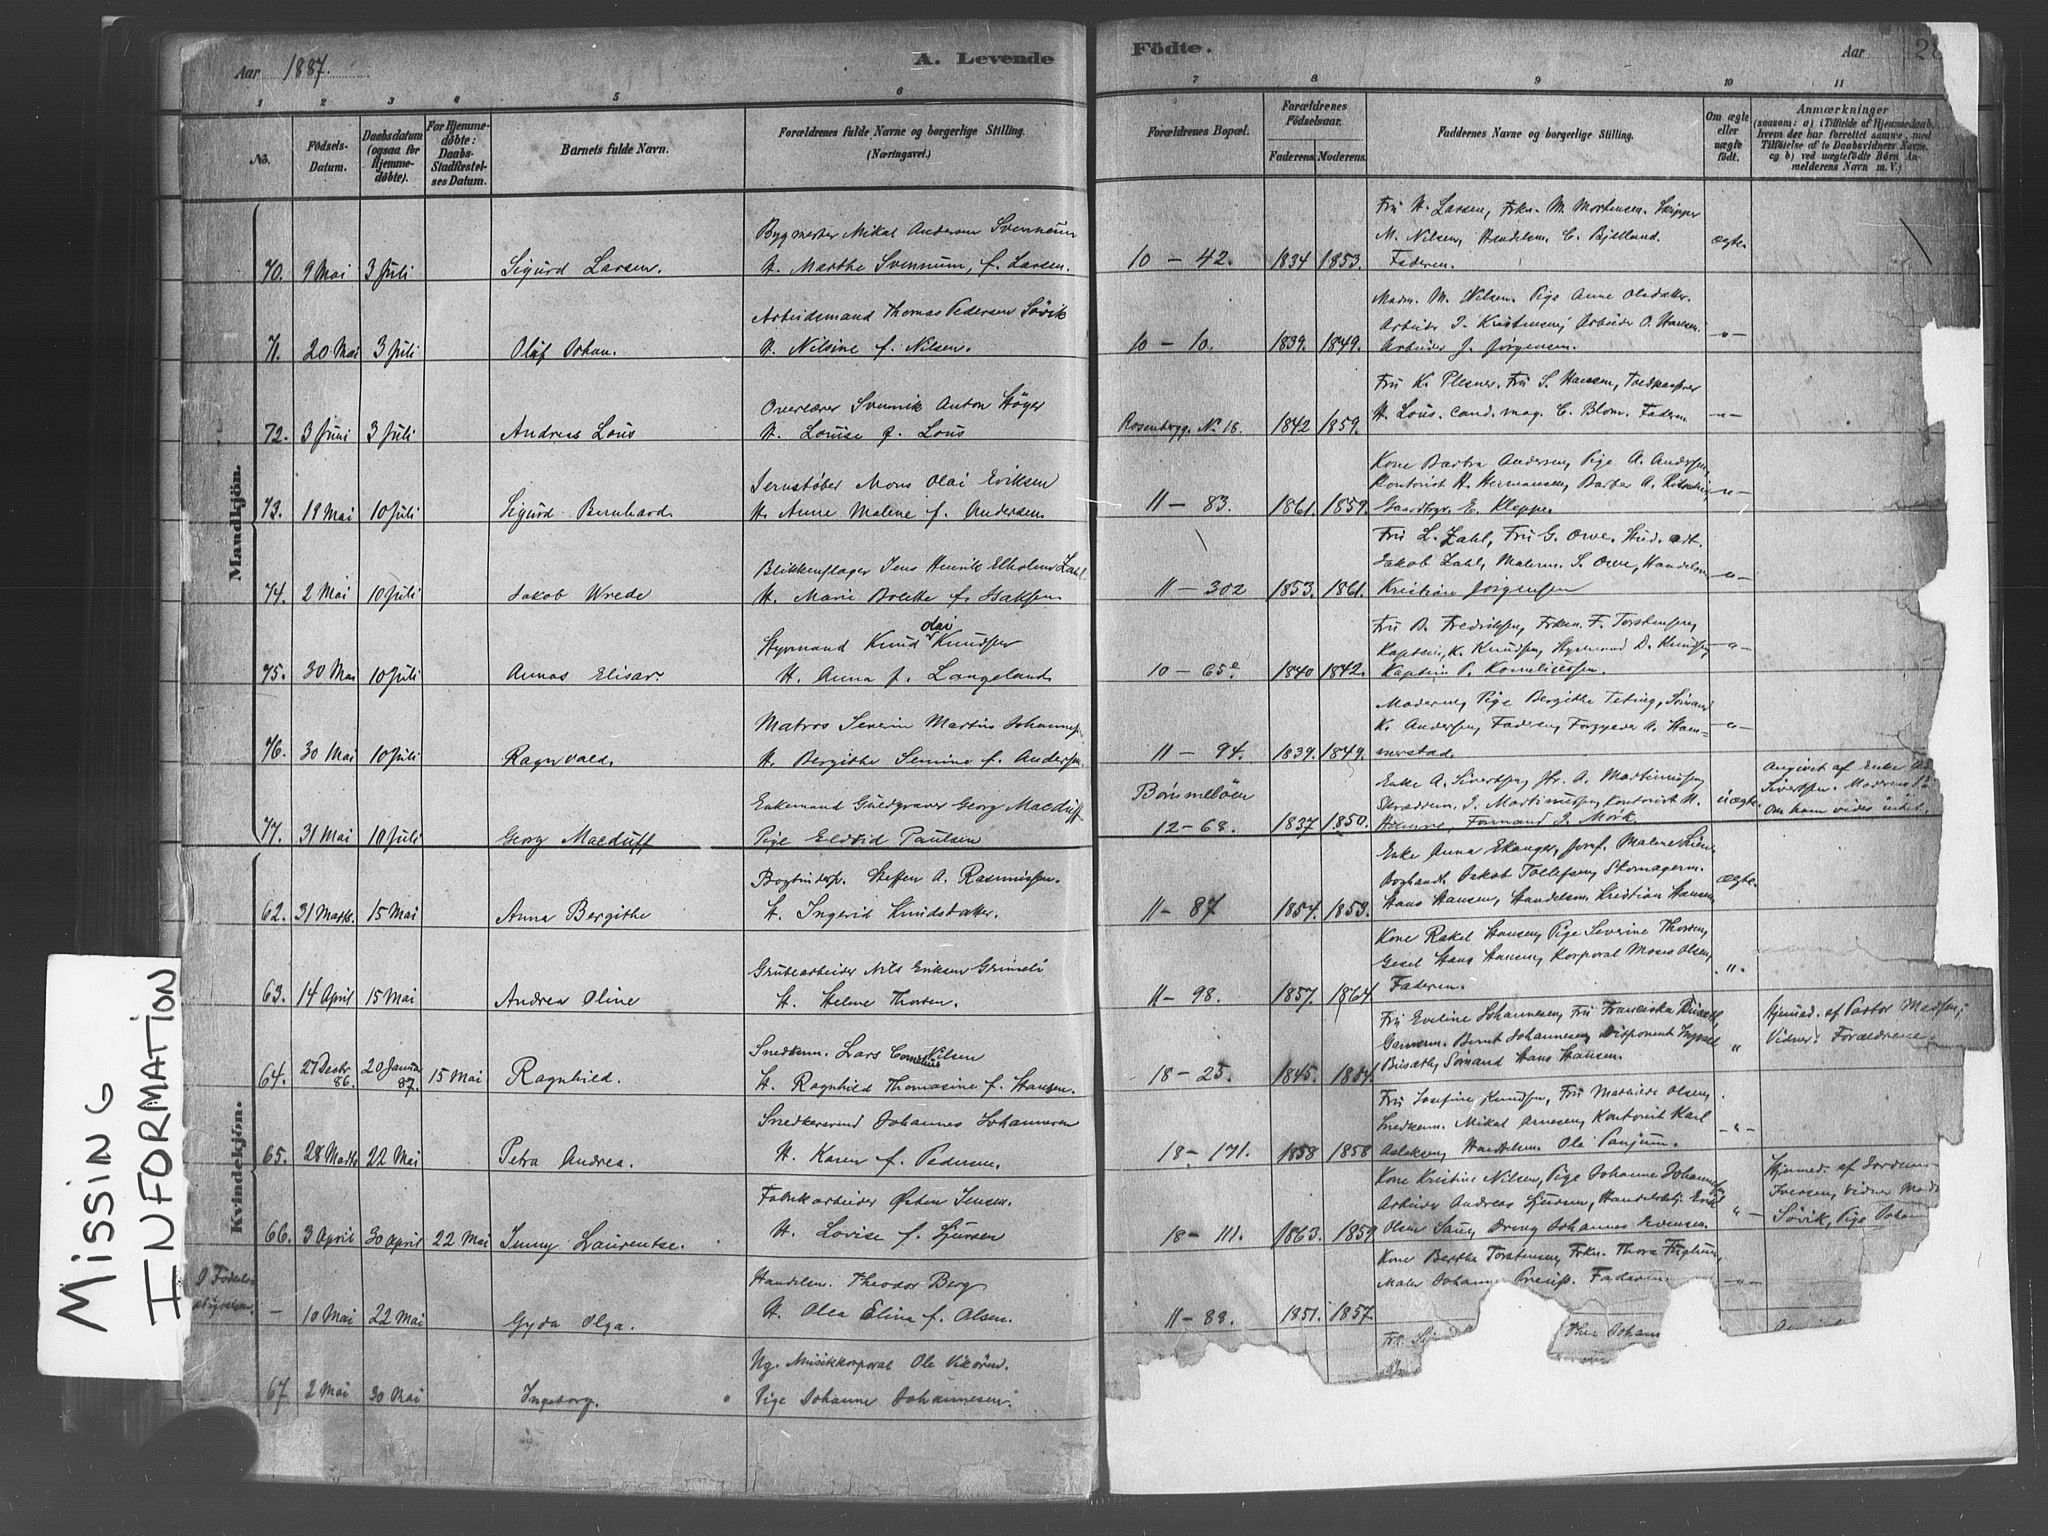 Aar 1887. A. Levende Födte. Aar 28
1 2 3 4 5 6 7 8 9 10 11
No.
Födsels-Datum.
Daabsdatum (ogsaa for Hjemme-döbte).
For Hjemme-döbte: Daabs-Stadfæstel-ses Datum.
Barnets fulde Navn.
Forældrenes fulde Navne og borgerlige Stilling.
(Næringsvei.)
Forældrenes Bopæl.
Forældrenes Födselsaar.
Faderens. Moderens.
Faddernes Navne og borgerlige Stilling.
Om ægte eller uægte födt.
Anmærkninger
(saasom: a) i Tilfælde af Hjemmedaab,
hvem der har forrettet samme, med
Tilföielse af to Daabsvidners Navne,
og b) ved uægtefödte Börn An-
melderens Navn m. V.)
Mandkjön.
Bygmester Mikal Andersen Svennum
Fru H. Larsen, Frkn. M. Mortensen. Skipper
M. Nilsen, Handelsm. C. Bjelland.
70. 9 Mai 3 Juli Sigurd Larsen. H. Marthe Svennum, f. Larsen. 10 – 42. 1834 1853. Faderen. ægte.
Arbeidsmand Thomas Pedersen Sövik
Madm. M. Nilsen. Pige Anne Olsdatter.
Arbeider J. Kristensen, Arbeider O. Hansen.
71. 20 Mai 3 Juli Olaf Johan. H. Nilsine f. Nilsen. 10 – 10. 1839. 1849. Arbeider J. Jörgensen. –"–
Overlærer Svennik Anton Höyer
Fru K. Plesner. Fru S. Hansen, Toldkasserer
72. 3 Juni 3 Juli Andreas Lous H. Louise f. Lous Rosenbergg. No 18. 1842 1859. H. Lous. cand. mag. C. Blom. Faderen –"–
Jernstöber Mons Olai Eriksen
Kone Barbra Andersen, Pige A. Andersen,
Kontorist H. Hermansen, Barber A.
73. 19 Mai 10 Juli Sigurd Bernhard H. Anne Malene f. Andersen. 11 – 83. 1861. 1859. E. Kleppe. –"–
Blikkenslager Jens Henrik Zahl.
Fru L. Zahl, Fru G. Owe, Stud. art.
Jakob Zahl, Malerm. S. Owe, Handelsm.
74. 2 Mai 10 Juli Jakob Wrede H. Marie Bolette f. Isaksen 11 – 302 1853. 1861. Kristian Jörgensen –"–
Styrmand Knud Olai Knudsen
Fru B. Fredriksen, Frkn. F. Torstensen,
Kaptein K. Knudsen, Styrmand D. Knudsen,
75. 30 Mai 10 Juli Annas Elisar. H. Anna f. Langeland 10 – 65e 1840 1842. Kaptein P. Korneliussen. –"–
Matros Severin Martin Johannesen
Moderen, Pige Bergithe Teting, Sömand
K. Andersen, Faderen, A. Ham-
76. 30 Mai 10 Juli Ragnvald. H. Bergithe Semine f. Andersen. 11 – 94. 1839. 1849. merstad. –"–
Enkemand Guldgraver Georg Macduff
Enke A. Sivertsen, A. Martinussen,
J. Martinussen, Kontorist H.
Angivet af Enke
Sivertsen. Moderens
Om ham vides intet.
77. 31 Mai 10 Juli Georg Macduff Pige Eldrid Paulsen 12 – 68. 1837 1850. Formand J. Mörk. uægte.
Kvindekjön.
Bogbindersv. Steffen A. Rasmussen.
Enke Anna Ekanger, Jomf. Malene Lien,
Boghandl. Jakob Tollefsen, Skomagerm.
62. 31 Marts. 15 Mai Anna Bergithe H. Ingerid Knudsdatter. 11 – 87 1854. 1853. Hans Hansen, Handelsm. Kristian Hansen, ægte.
Grubearbeider Nils Eriksen Grimeli
Kone Rakel Hansen, Pige Severine Thorsen,
Gesel Hans Hansen, Korporal Moses Olsen,
63. 14 April 15 Mai Andrea Oline H. Helene Thorsen. 11 – 98. 1857. 1864. Faderen. "
Snedkerm. Lars Cornelius Nilsen
Fru Eveline Johannesen, Fru Franciska
Bernt Johannesen, Disponent Ingvald
Hjemmed. af Pastor Madsen;
Vidner: Forældrene
64. 27 Decbr 86. 20 Januar 87. 15 Mai Ragnhild. H. Ragnhild Thomasine f. Hansen. 18 – 25. 1845. 1854. Sömand Hans Hansen. "
Snedkersvend Johannes Johannesen
Fru Josefine Knudsen, Fru Mathilde Olsen,
Snedkerm. Mikal Arnesen, Kontorist Karl
65. 28 Marts 22 Mai Petra Andrea. H. Karen f. Pedersen. 18 – 171. 1858 1858 Aslaksen, Handelsm. Ole Tanjum. –"–
Fabrikarbeider Østen Jensen.
Kone Kristine Nilsen, Pige Johanne Johannes
Arbeider Andreas Sjursen,
Hjemmed. af
Iversen, Vidner
Sövik, Pige Johan
66. 3 April 30 April 22 Mai Jenny Laurentse. H. Lovise f. Sjursen 18 – 111. 1863. 1859 Olsen Dreng Johannes Evensen. " –
Handelsm. Theodor Berg
Kone Berthe Torstensen, Frkn. Thora
Maler Johannes Faderen.
– 10 Mai 22 Mai Gyda Olga. H. Olea Elina f. Olsen. 11 – 88. 1851. 1857. –"–
Ug. Musikkorporal Ole Vikören.
Johan
67 2 Mai 30 Mai Ingeborg. Pige Johanne Johannesen.
MISSING
INFORMATION